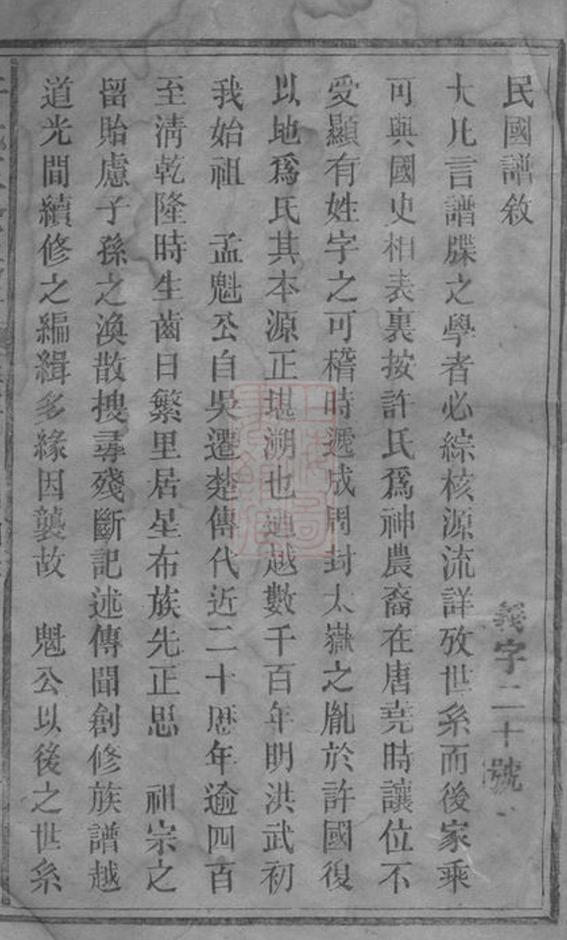 民國譜敘
義字二十號
大凡言譜牒之學者必綜核源流詳攷世系而後家乘
可與國史相表裏按許氏爲神農裔在唐堯時讓位不
受顯有姓字之可稽時遞成周封太嶽之胤於許國復
以地爲氏其本源正堪溯也迺越數千百年明洪武初
我始祖　孟魁公自吳遷楚傳代近二十歴年逾四百
至清乾隆時生齒日繁里居星布族先正思　祖宗之
留貽慮子孫之渙散搜尋殘斷記述傳聞創修族譜越
道光間續修之編緝多緣因襲故　魁公以後之世系